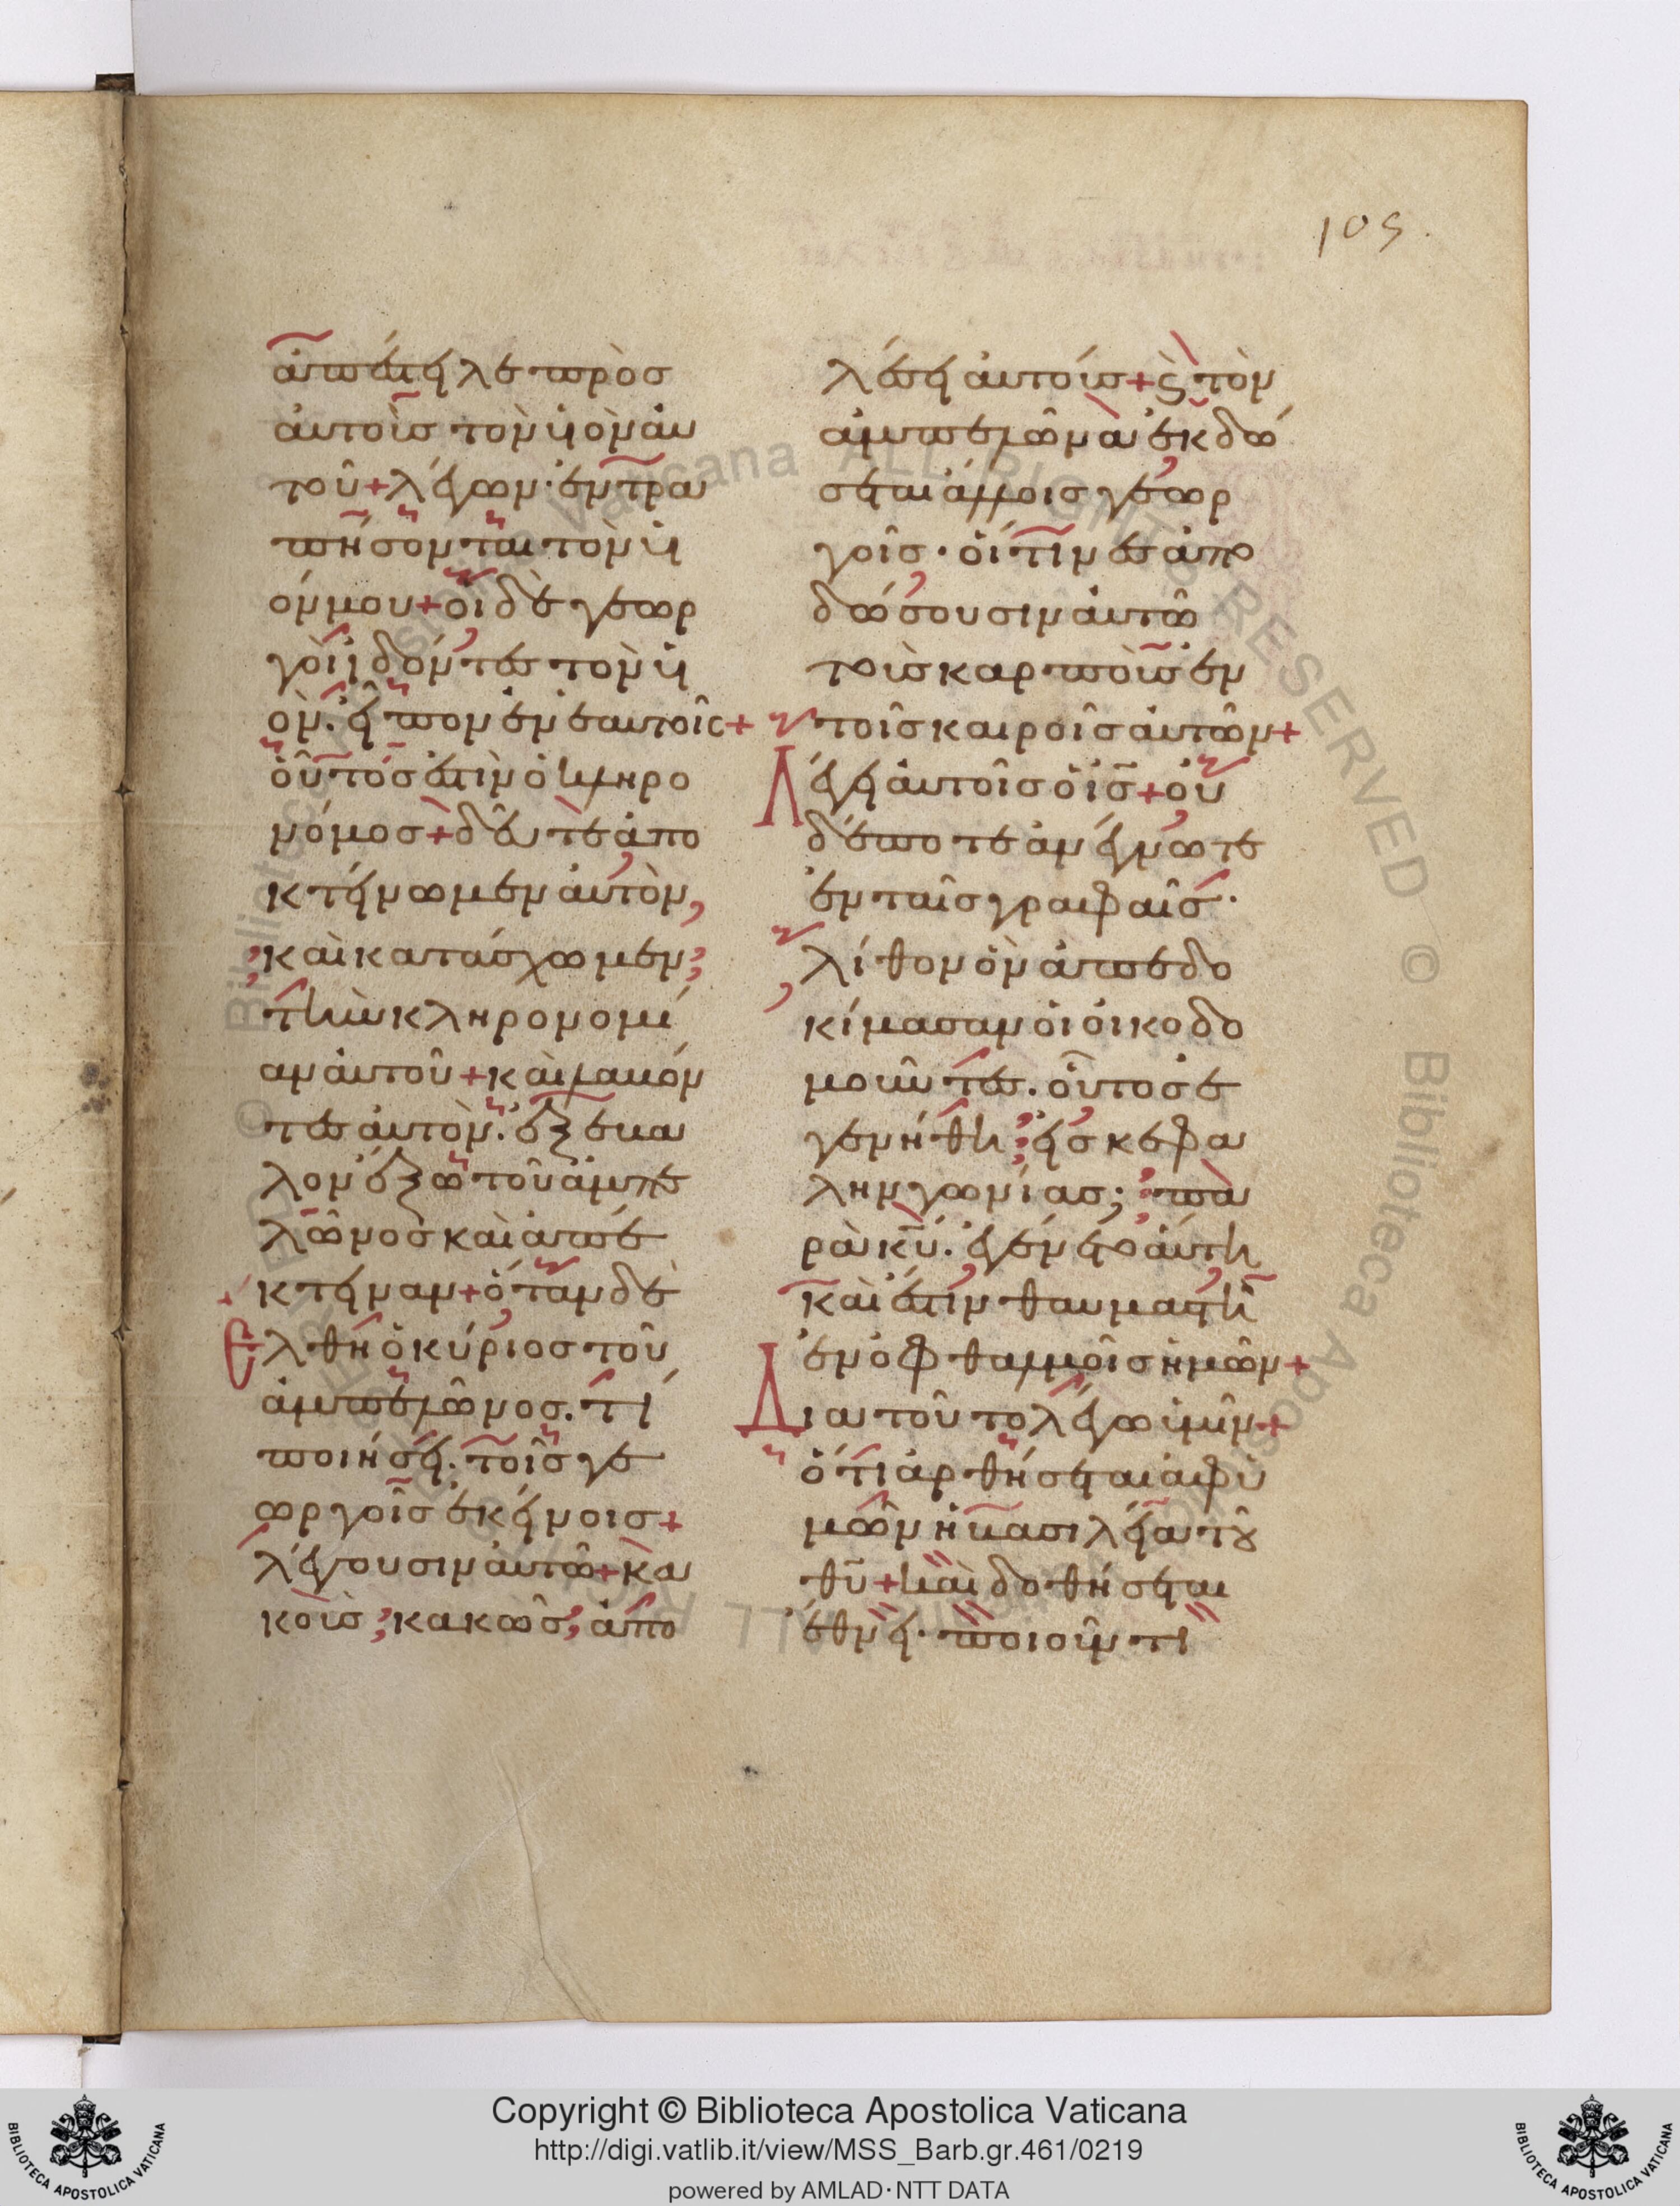 105.
ἀπέστειλε πρὸς
ἀυτοὺς τὸν υἱὸν ἀυ
τοῦ + λέγων · ἐντρα
πήσονται τὸν υἱ
όν μου + οἱ δὲ γεωρ
γοὶ ἰδόντες τὸν υἱ
ὸν. εἶπον ἐν ἑαυτοῖς +
οὗτος ἐστὶν ὁ κληρο
νόμος + δεῦτε ἀπο
κτείνωμεν ἀυτὸν,
καὶ κατάσχωμεν
τὴν κληρονομί
αν ἀυτοῦ + καὶ λαβόν
τες ἀυτὸν. ἐξέβα
λον ἔξω τοῦ ἀμπε
λῶνος καὶ ἀπέ
κτειναν + ὅταν δὲ
ἔλθη ὁ κύριος τοῦ
ἀμπελῶνος. τί
ποιήσει. τοῖς γε
ωργοῖς ἐκείνοις +
λέγουσιν ἀυτῶ + κα
κοὺς κακῶς ἀπο
λέσει ἀυτούς + ϗ τὸν
ἀμπελῶνα ἐκδώ
σεται ἄλλοις γεωρ
γοῖς · οἵτινες ἀπο
δώσουσιν ἀυτῶ
τοὺς καρποὺς ἐν
τοῖς καιροῖς ἀυτῶν +
Λέγει ἀυτοῖς ὁ ἰς + οὐ
δέποτε ἀνέγνωτε
ἐν ταῖς γραφαῖς ·
λίθον ὃν ἀπεδο
κίμασαν οἱ οἰκοδο
μοῦντες. οὗτος ἐ
γενήθη εἰς κεφα
λὴν γωνίας; πα
ρὰ κυ. ἐγένετο ἀύτη
καὶ ἔστιν θαυμαστὴ
ἐν ὀφθαλμοῖς ἡμῶν +
Δια τοῦτο λέγω ὑμῖν +
ὅτι ἀρθήσεται ἀφ ὑ
μῶν ἡ βασιλεία τȣ
θυ + καὶ δοθήσεται
ἔθνει · ποιοῦντι
Copyright © Biblioteca Apostolica Vaticana
http://digi.vatlib.it/view/MSS_Barb.gr.461/0219
powered by AMLAD·NTT DATA
BIBLIOTECA APOSTOLICA VATICANA
BIBLIOTECA APOSTOLICA VATICANA